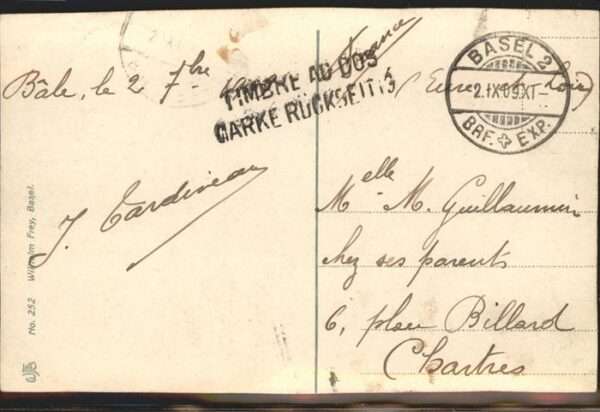 Bâle, le 2 7bre
TIMBRE AU DOS
MARKE RÜCKSEITIG
J. Cardineau
France
(Eure et Loir)
BASEL 2
2.IX.09.XI-
BRF. EXP.
Melle M. Guillaumin
chez ses parents
6, place Billard
Chartres
No. 252 Wilhelm Frey, Basel.